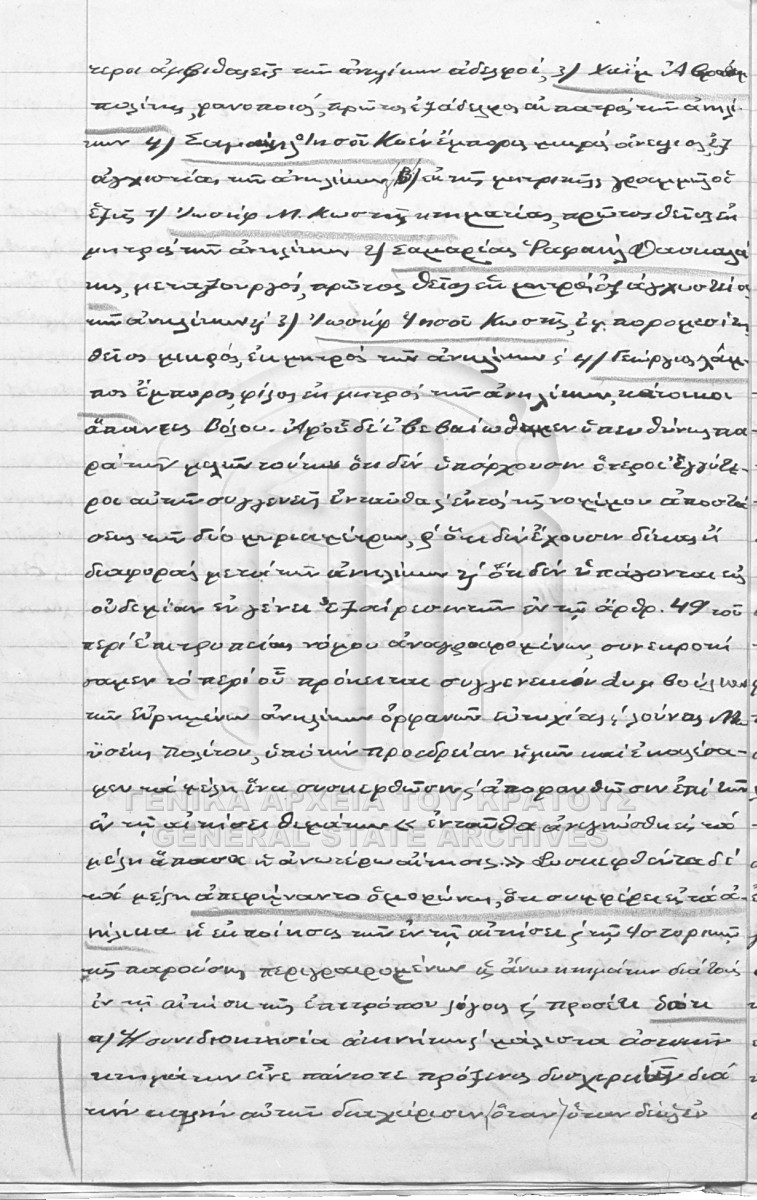 τεροι ἀμφιθαλεῖς τῶν ἀνηλίκων ἀδελφοί, 3) Χαΐμ Ἀβραὰμ
Πολίτης, φανοποιός, πρῶτος ἐξάδελφος ἐκ πατρός τῶν ἀνηλί-
κων 4) Σαμουὴλ Ἰησοῦ Κοέν ἔμπορος μικρός ἀνεψιός ἐξ
ἀγχιστείας τῶν ἀνηλίκων Β) ἐκ τῆς μητρικῆς γραμμῆς οἱ
ἑξῆς 1) Ἰωσὴφ Μ. Κωστῆς κτηματίας, πρῶτος θεῖος ἐκ
μητρός τῶν ἀνηλίκων 2) Σαμαρίας Ῥαφαὴλ Δασκαλά
κης, μεταξουργός, πρῶτος θεῖος ἐκ μητρός ἐξ ἀγχιστείας
τῶν ἀνηλίκων ϛ 3) Ἰωσὴφ Ἰησοῦ Κωστῆς, ἐμπορομεσίτης
θεῖος μικρός, ἐκ μητρός τῶν ἀνηλίκων ϛ 4) Γεώργιος Λάμ-
πος ἔμπορος, φίλος ἐκ μητρός τῶν ἀνηλίκων, κάτοικοι
ἅπαντες Βόλου. Ἀφοῦ δέ ἐβεβαιώθημεν ὑπευθύνως πα
ρά τῶν μελῶν τούτων ὅτι δέν ὑπάρχουσιν ἕτεροι ἐγγύτε-
ροι αὐτῶν συγγενεῖς ἐνταῦθα ϛ ἐντός τῆς νομίμου ἀποστά
σεως τῶν δύο μυριαμέτρων, ϛ ὅτι δέν ἔχουσιν δίκας ἤ
διαφοράς μετά τῶν ἀνηλίκων ϛ ὅτι δέν ὑπάγονται εἰς
οὐδεμίαν ἐν γένει ἐξαίρεσιν τῶν ἐν τῷ ἄρθρ. 49 του
περί ἐπιτροπείας νόμου ἀναγραφομένων, συνεκροτή
σαμεν τό περί οὗ πρόκειται συγγενικόν συμβούλιον
τῶν εἰρημένων ἀνηλίκων ὀρφανῶν εὐτυχίας ϛ Λούνας Μω
ϋσέως Πολίτου, ὑπό τήν προεδρείαν ἡμῶν καί ἐκαλέσα-
μεν τά μέλη ἵνα συσκεφθῶσιν ϛ ἀποφανθῶσιν ἐπί τῶν
ΓΕΝΙΚΑ ΑΡΧΕΙΑ ΤΟΥ ΚΡΑΤΟΥΣ
ἐν τῇ αἰτήσει θεμάτων « ἐνταῦθα ἀνεγνώσθη εἰς τά
GENERAL STATE ARCHIVES
μέλη ἅπασα ἡ ἀνωτέρω αἴτησις» Συσκεφθέντα δέ
τά μέλη ἀπεφήναντο ὁμοφώνως, ὅτι συμφέρει εἰς τά ἀ-
νήλικα ἡ ἐκποίησις τῶν ἐν τῇ αἰτήσει ϛ τῷ ἱστορικῷ
τῆς παρούσης περιγραφομένων ὡς ἄνω κτημάτων διά τούς
ἐν τῇ αἰτήσει τῆς ἐπιτρόπου λόγους ϛ προσέτι διότι
α) Ἡ συνιδιοκτησία ἀκινήτων ϛ μάλιστα ἀστικῶν
κτημάτων εἶνε πάντοτε πρόξενος δυσχερειῶν διά
τήν καλήν αὐτῶν διαχείρισιν (ὅταν) ὅταν δέ